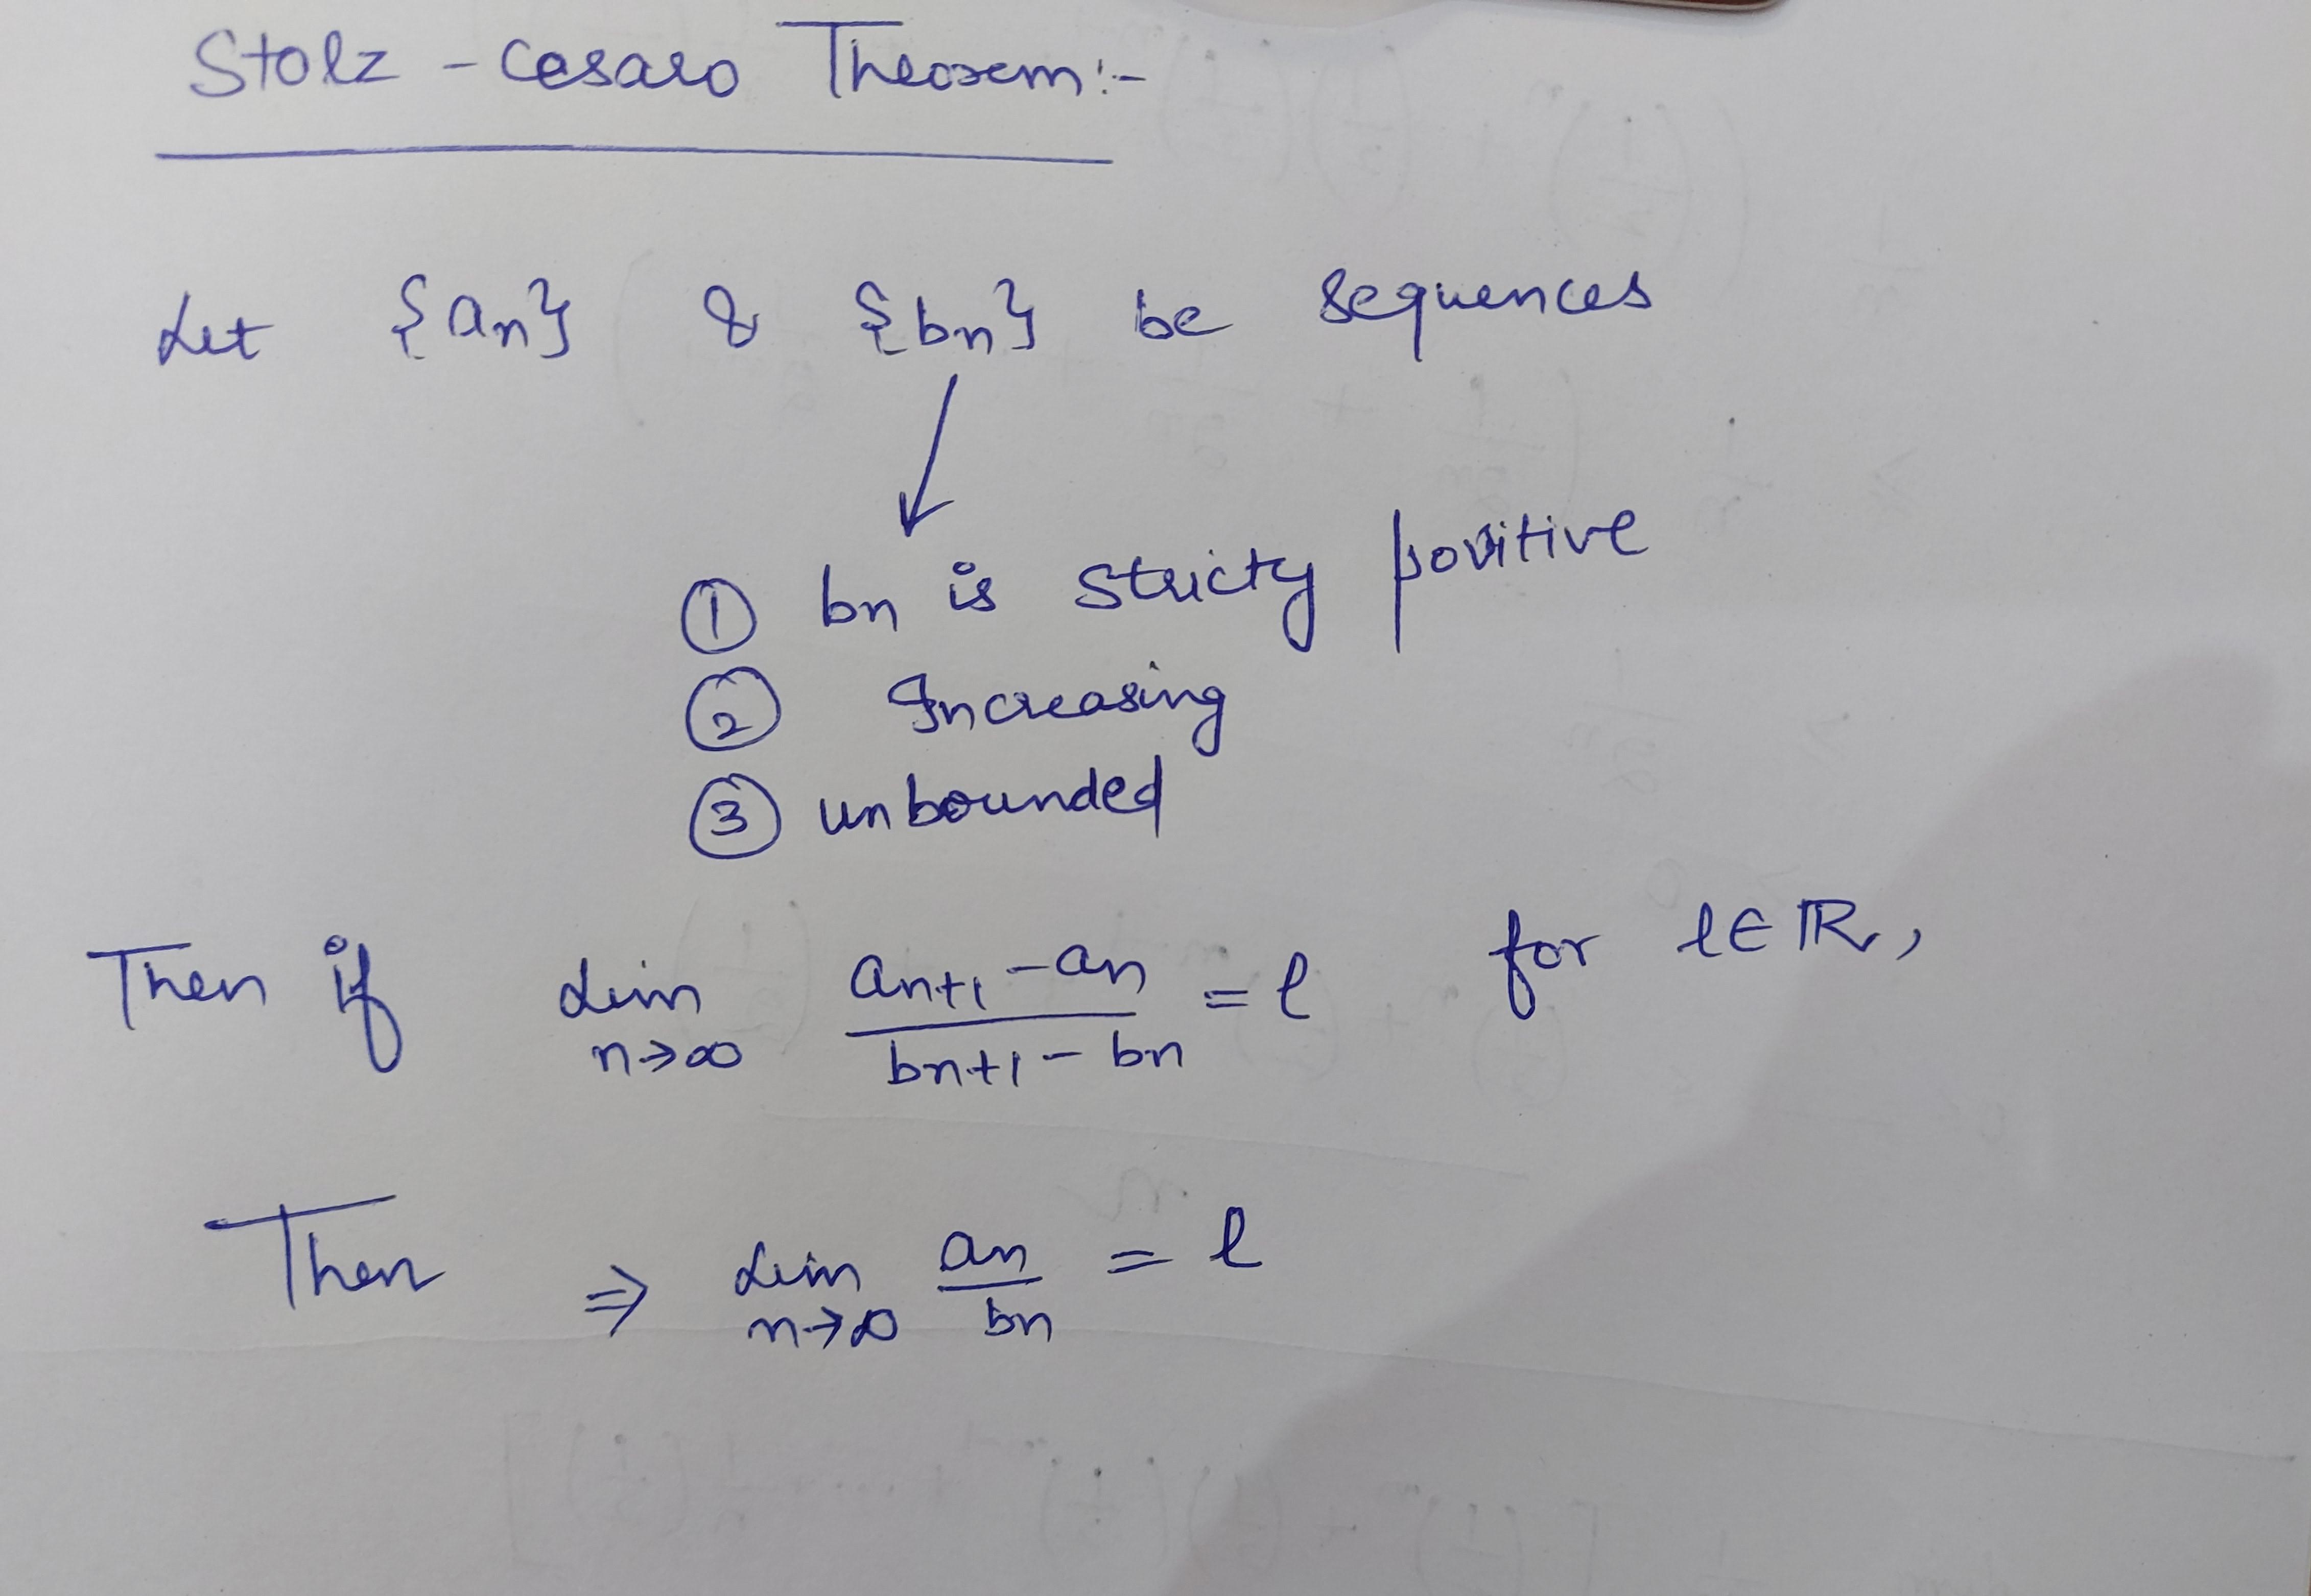 Stolz - Cesaro Theorem:-
Let {an} & {bn} be sequences
① bn is stricty positive
② Increasing
③ unbounded
Then if Lim n→∞ an+1 - an / bn+1 - bn = l for l ∈ ℝ,
Then ⇒ Lim n→∞ an / bn = l